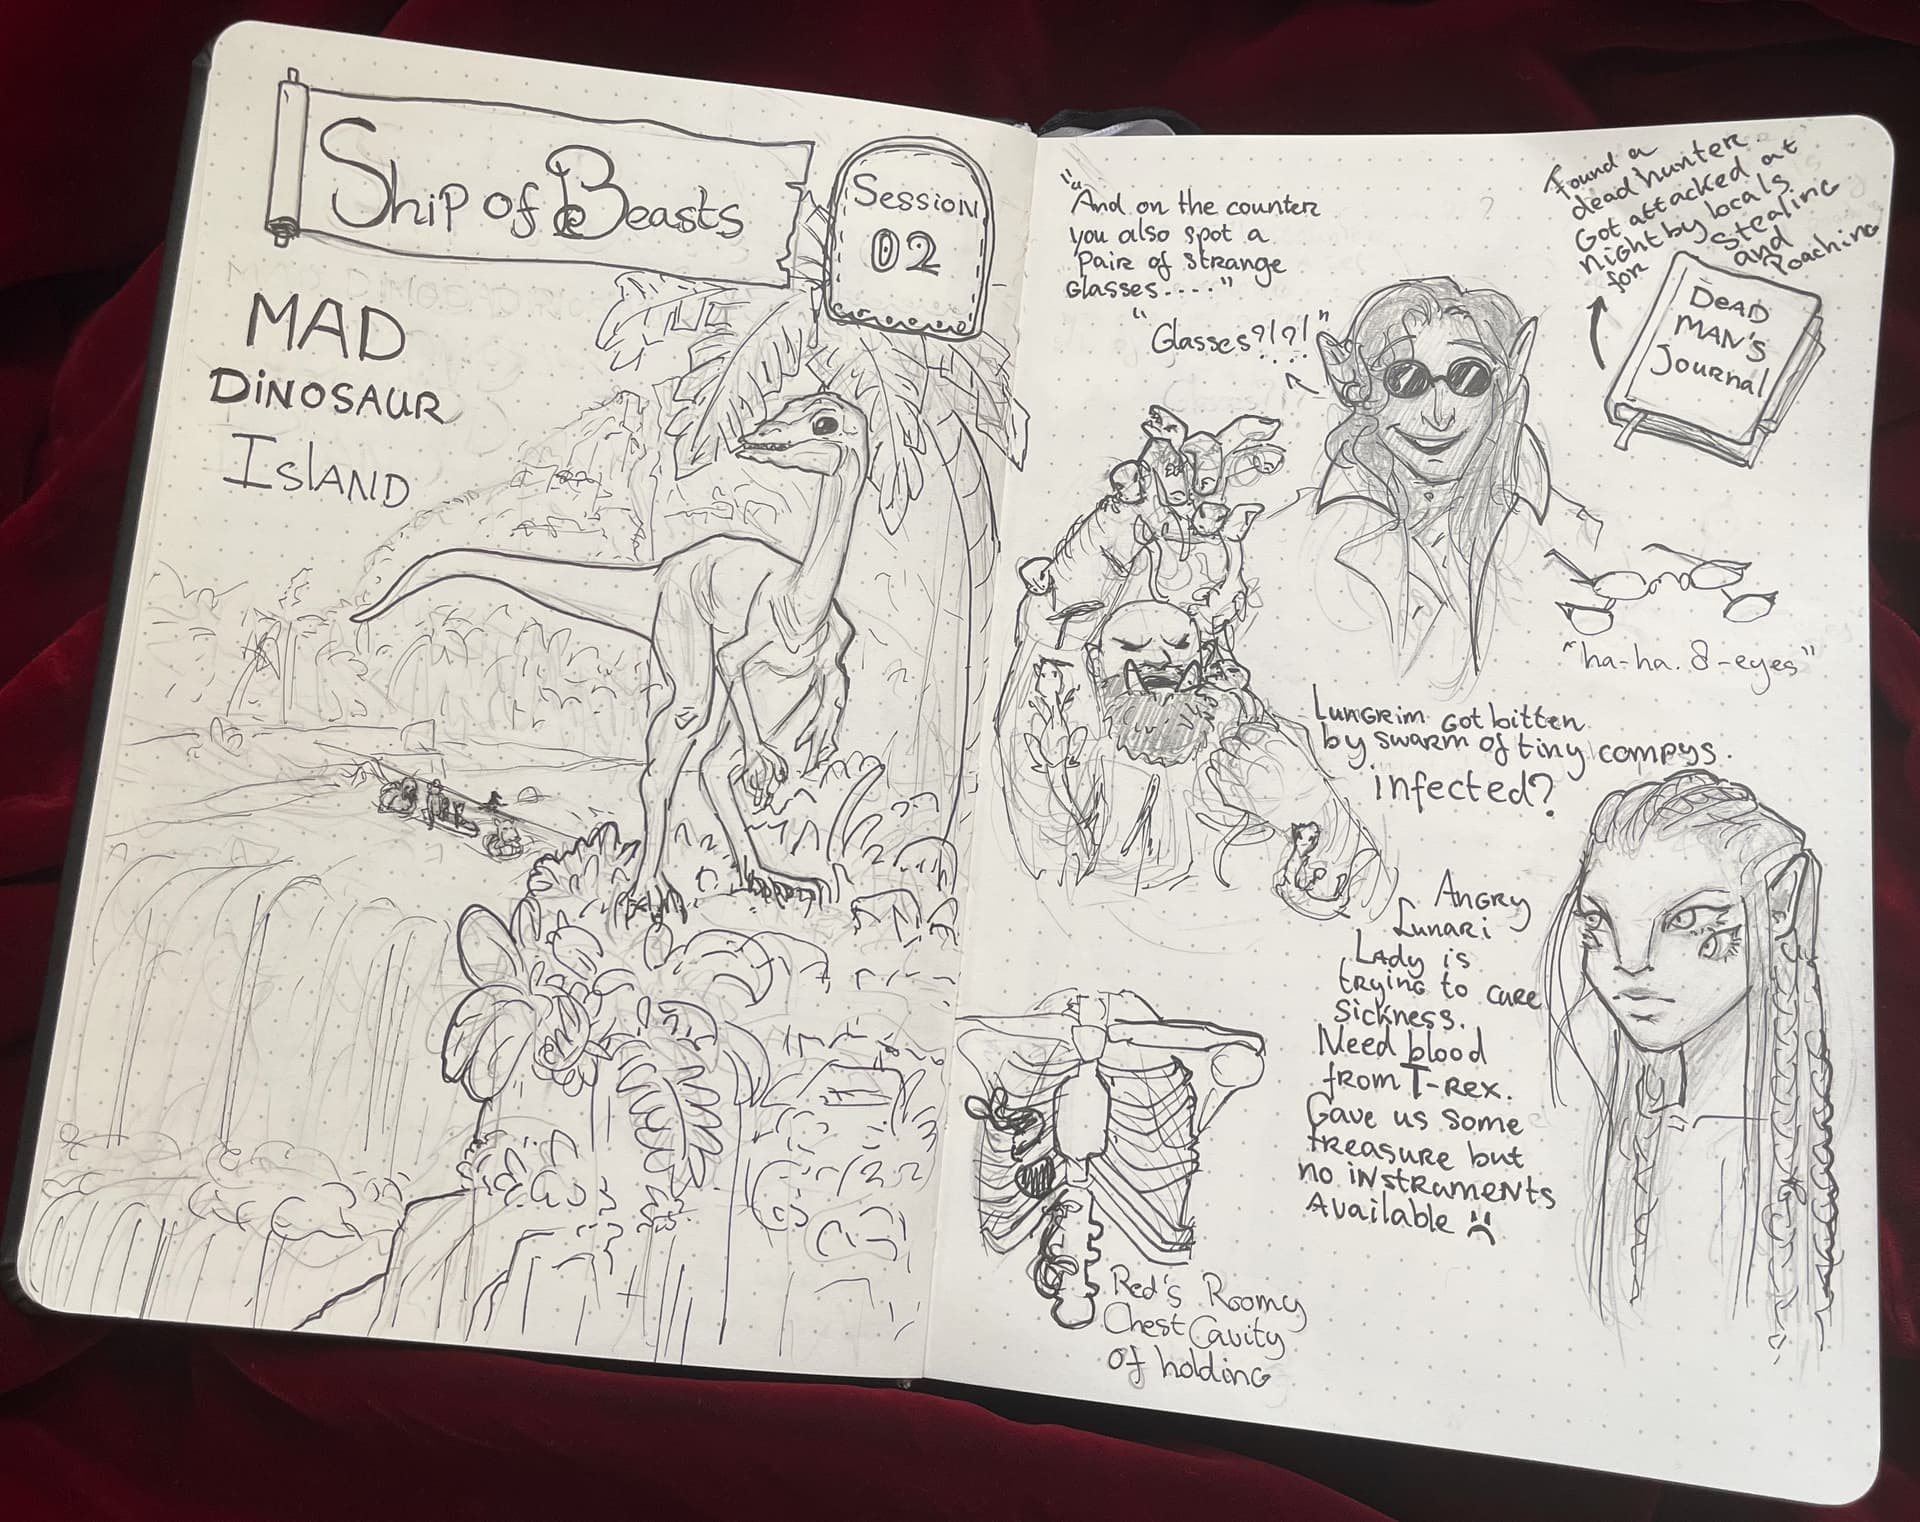 Ship of Beasts
Session
02
MAD
DiNOSAUR
IslAND
"And on the counter
you also spot a
pair of strange
Glasses...."
"Glasses?!?!"
Found a
dead hunter.
Got attacked at
night by locals
for stealing
and
Poaching
DEAD
MAN'S
Journal
"ha-ha. 8-eyes"
Lungrim got bitten
by swarm of tiny compys.
infected?
Angry
Lunari
Lady is
trying to cure
sickness.
Need blood
from T-rex.
Gave us some
treasure but
no instraments
Available
Red's Roomy
Chest Cavity
of holding